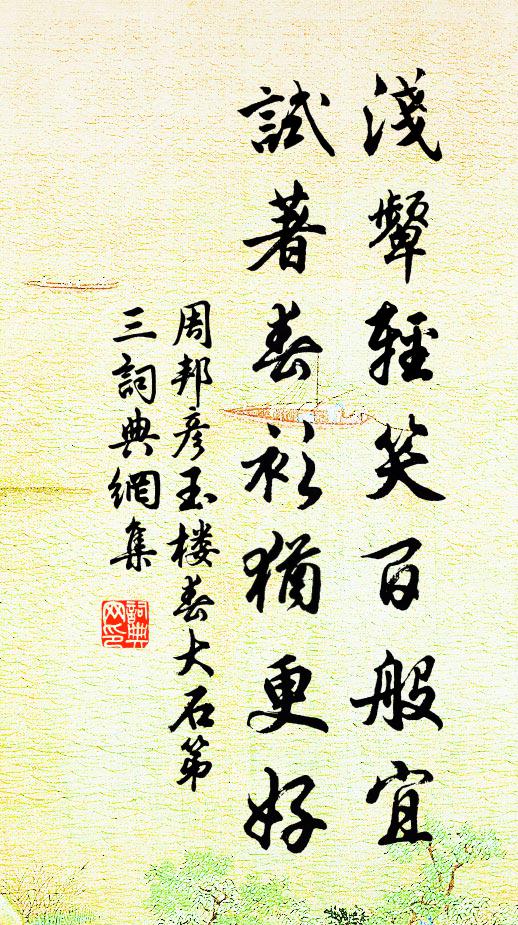 淺顰輕笑百般宜
試著春衫猶更好
周邦彥玉楼春大石第
三詞典網集
詞典网印